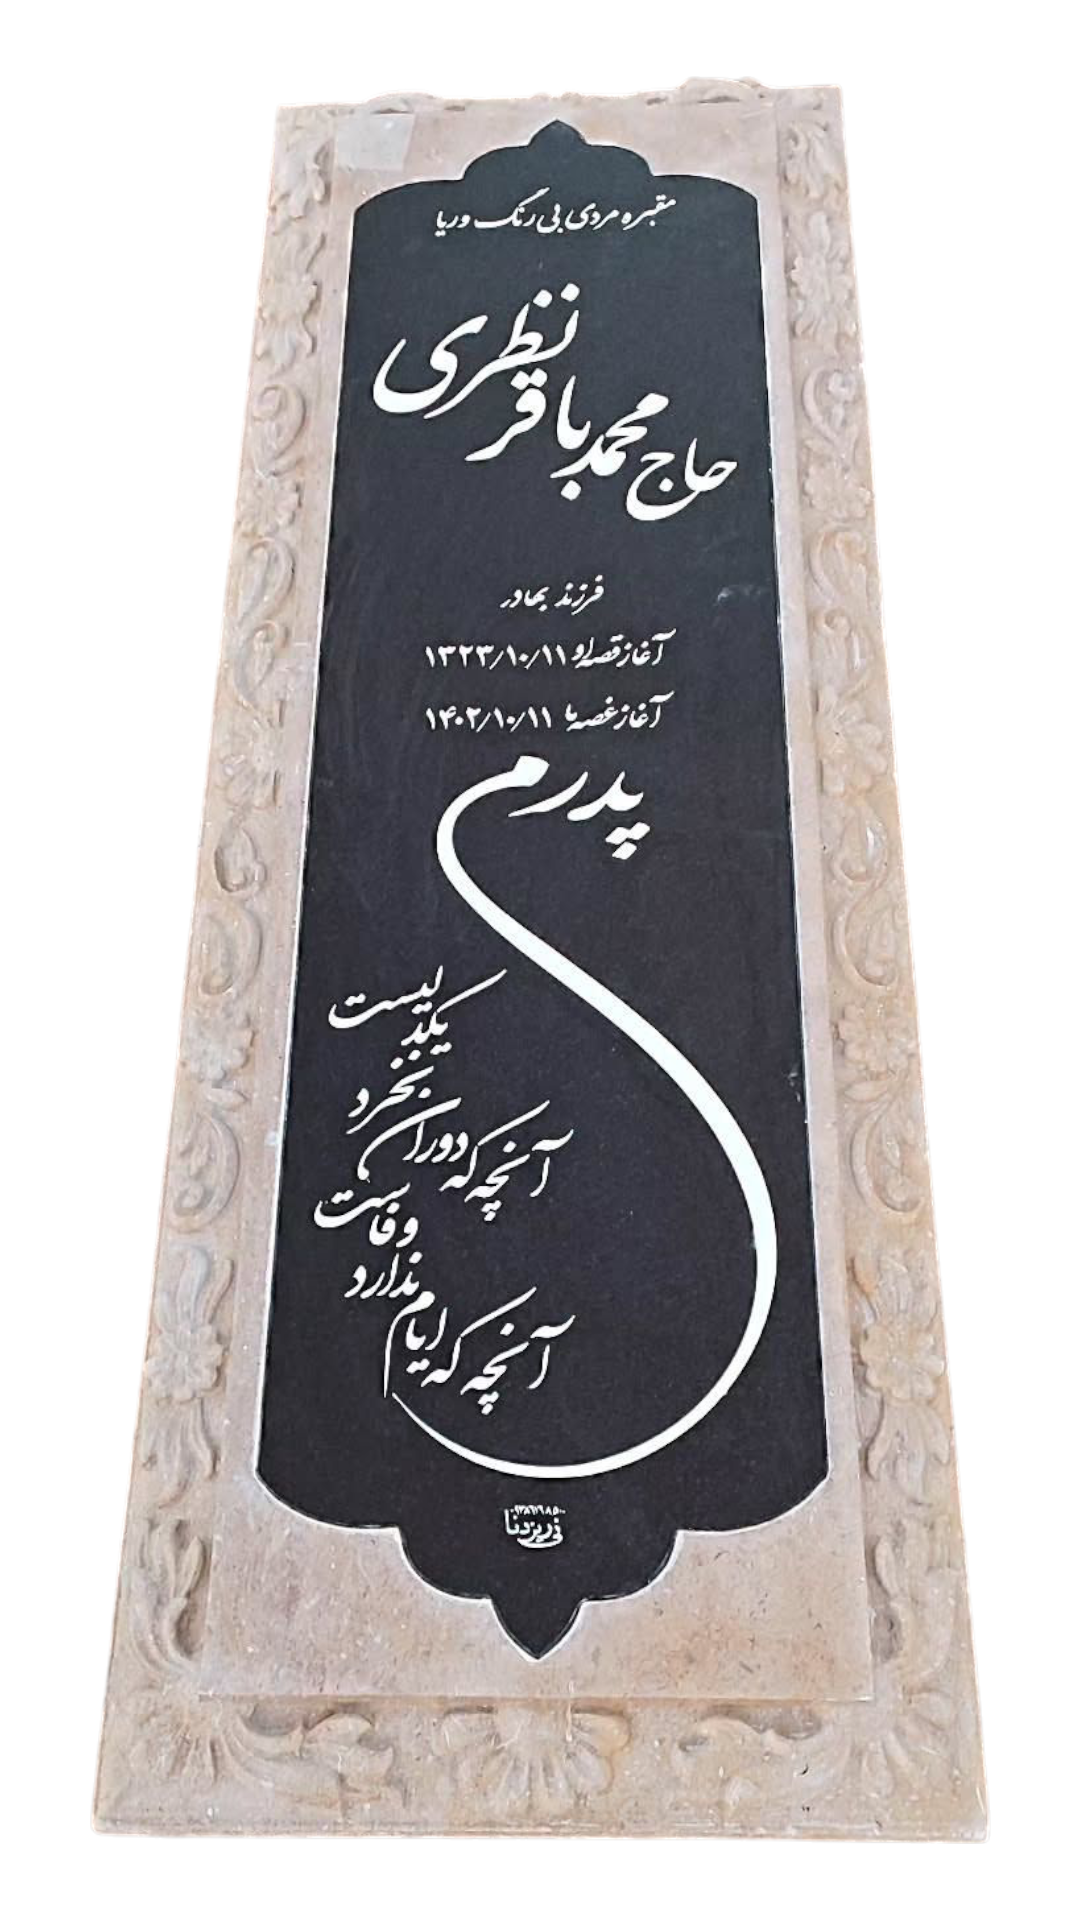 مقبره مردی بی رنگ و ریا
حاج محمدباقر نظری
فرزند بهادر
آغاز قصه او ۱۳۲۳/۱۰/۱۱
آغاز غصه ما ۱۴۰۲/۱۰/۱۱
پدرم
آنچه که ایام ندارد وفاست
آنچه که دوران نخرد یکدلیست
نی ریز دنا